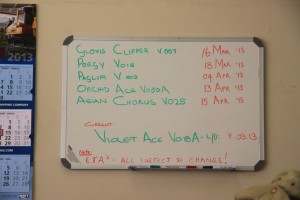 2013
GLOVIS CLIPPER V007 16 MAR '13
PORGY V016 18 MAR '13
PAGLIA V 04 APR '13
ORCHID ACE V000A 13 APR '13
ASIAN CHORUS V025 15 APR '13
CURRENT
VIOLET ACE V018A -
Note:
ETA' - ALL SUBJECT TO CHANGE!